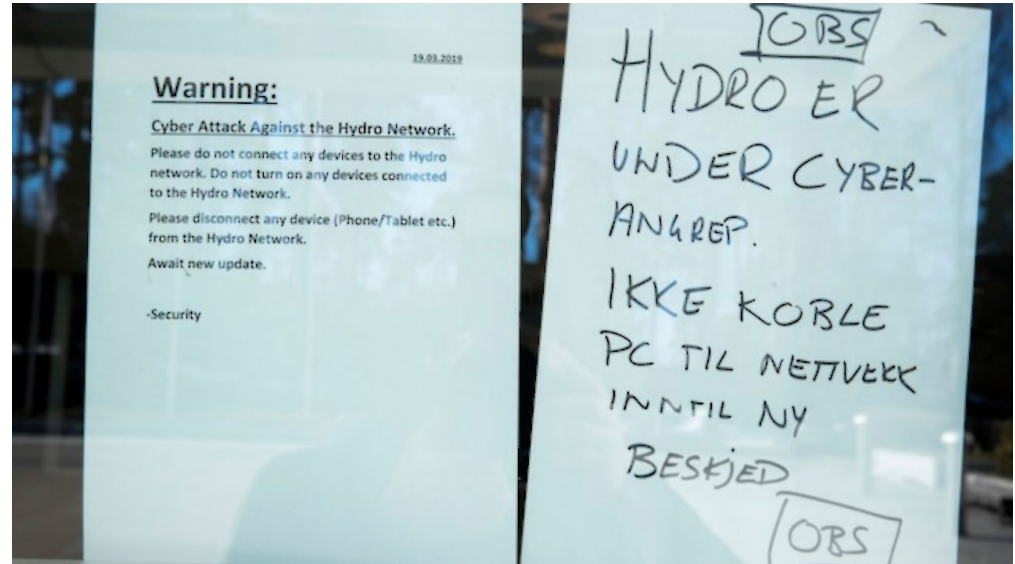 19.03.2019
Warning:
Cyber Attack Against the Hydro Network.
Please do not connect any devices to the Hydro
network. Do not turn on any devices connected
to the Hydro Network.
Please disconnect any device (Phone/Tablet etc.)
from the Hydro Network.
Await new update.
-Security
OBS
HYDRO ER
UNDER CYBER-
ANGREP.
IKKE KOBLE
PC TIL NETTVEKK
INNTIL NY
BESKJED
OBS